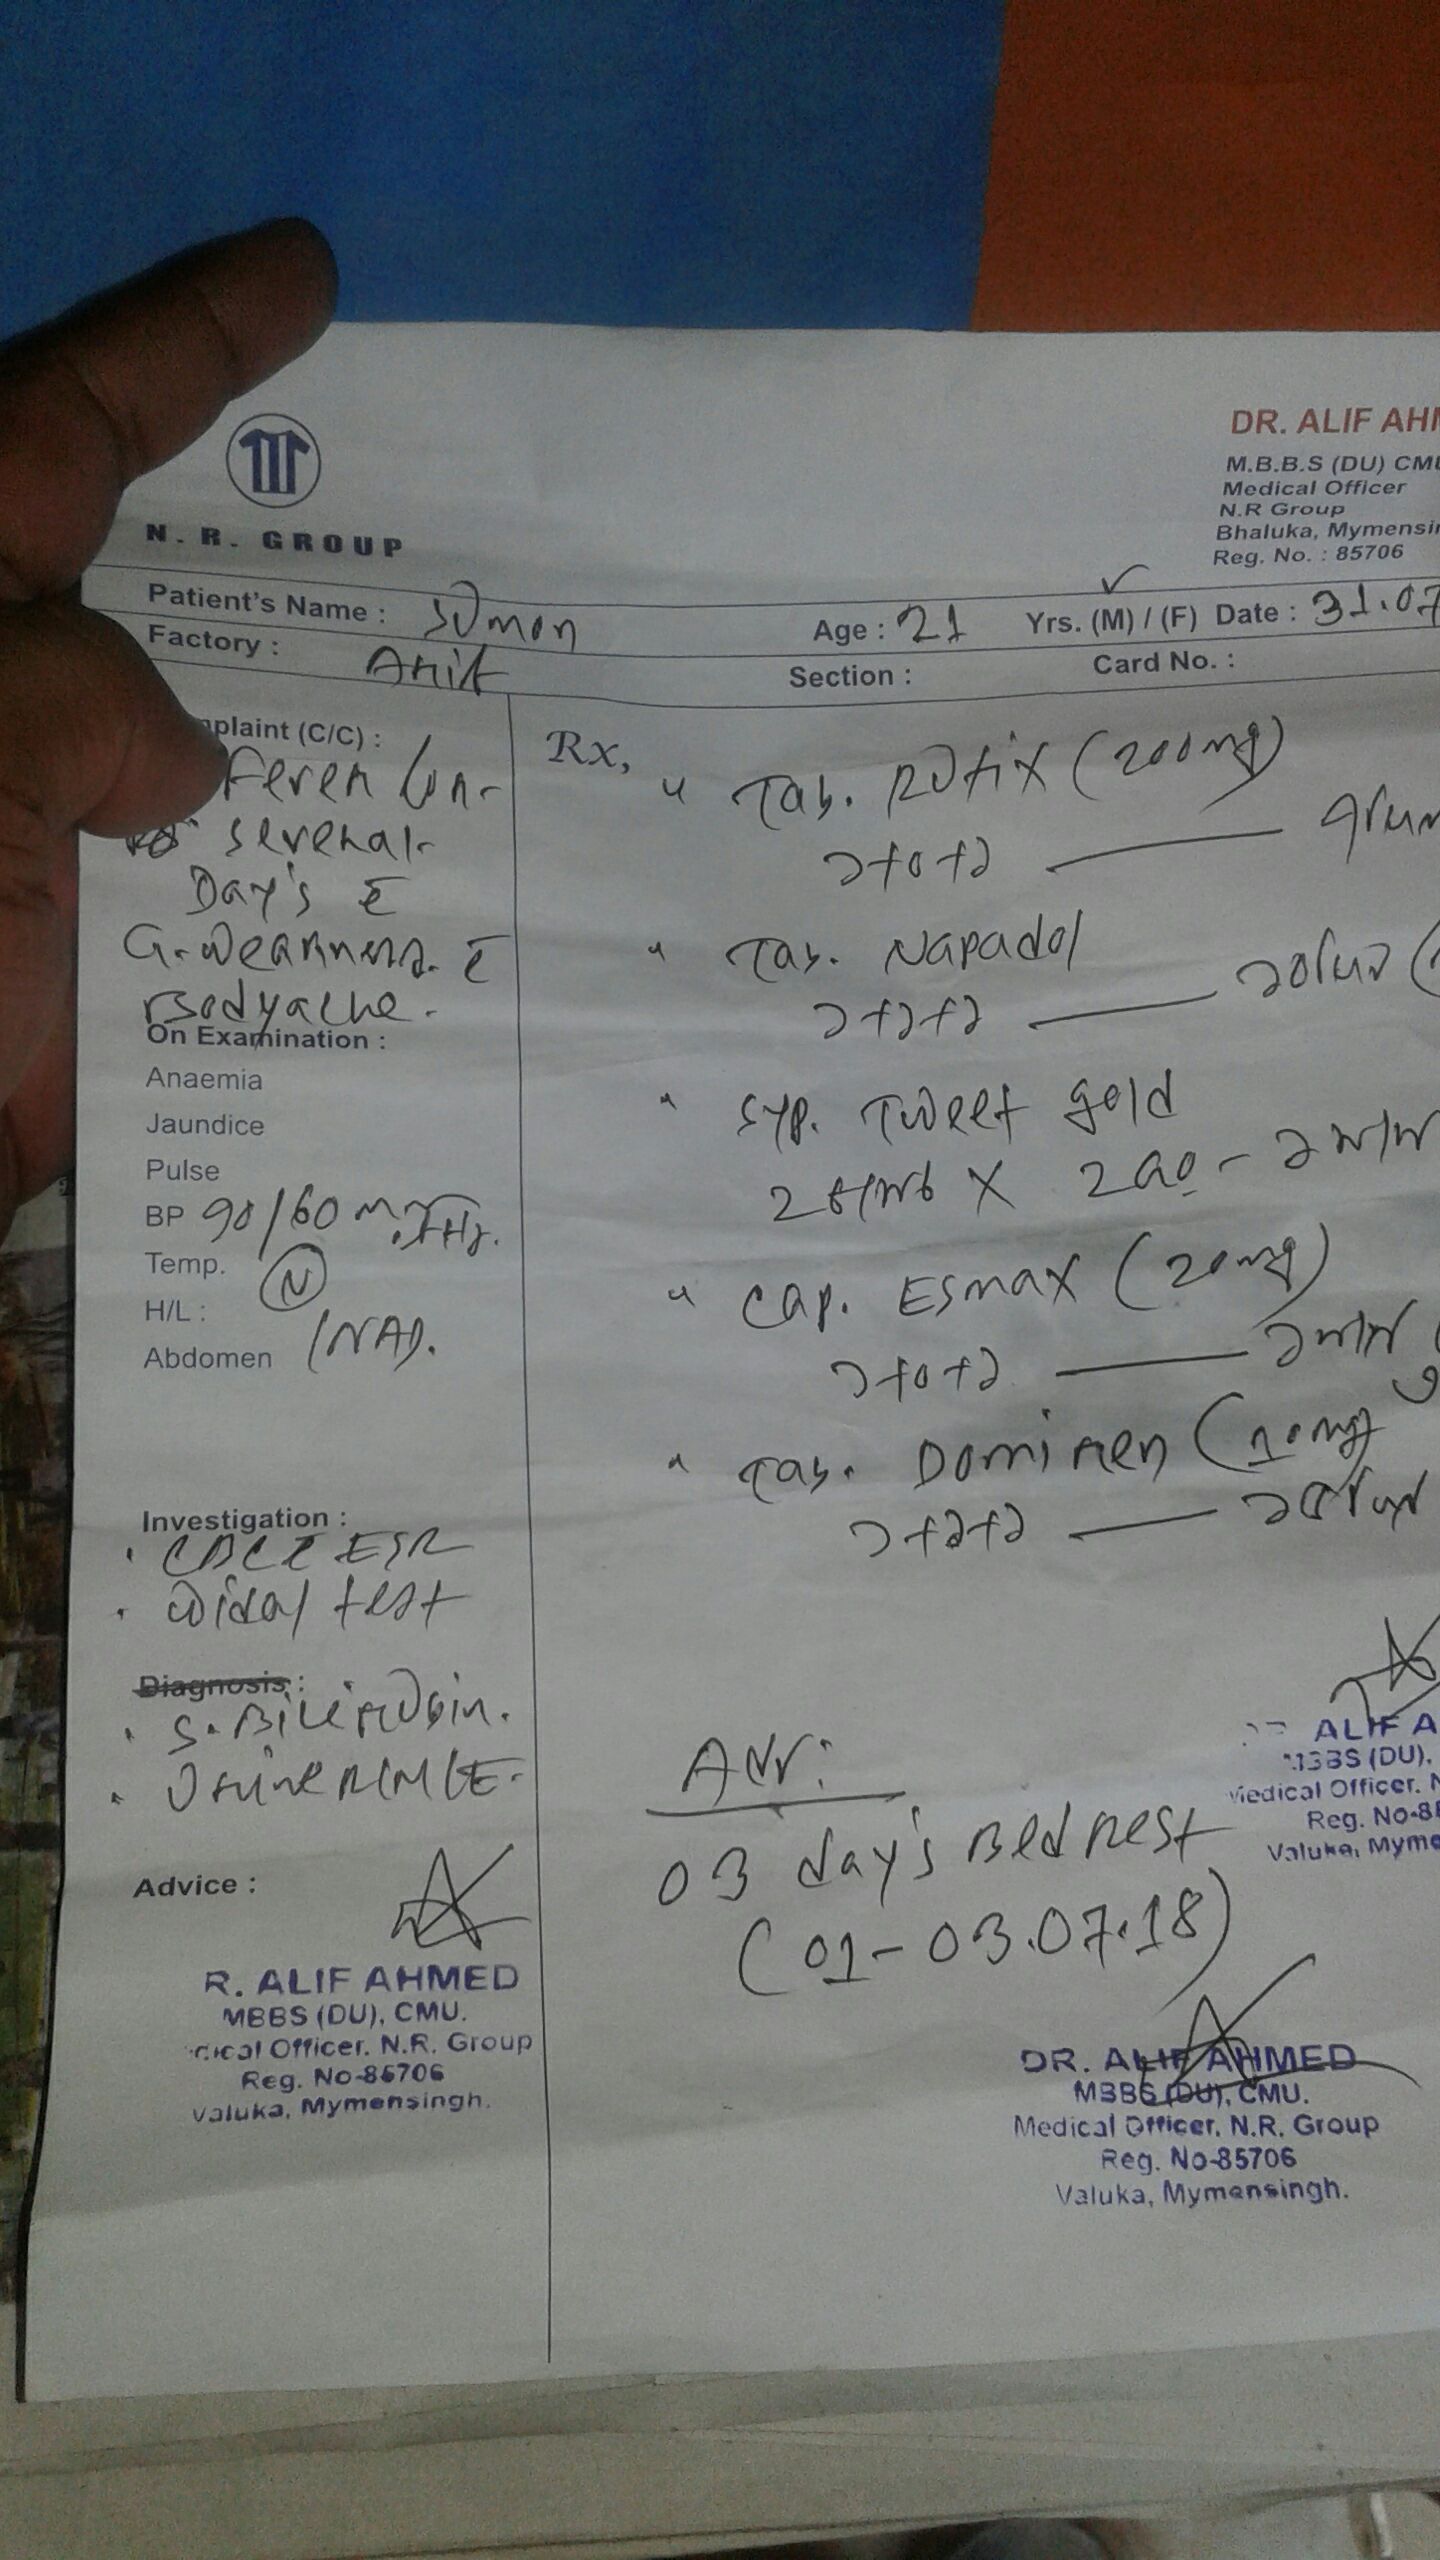 N. R. GROUP
DR. ALIF AHM
M.B.B.S (DU) CMU
Medical Officer
N.R Group
Bhaluka, Mymensin
Reg. No. : 85706
Patient's Name : Sumon Age : 21 Yrs. (M) / (F) Date : 31.07
Factory : Section : Card No. :
mplaint (C/C) :
Fever for
several
Day's c̄
G. weakness. c̄
Bodyache.
On Examination :
Anaemia
Jaundice
Pulse
BP 90/60 mmHg.
Temp. N
H/L :
Abdomen NAD.
Investigation :
CBC c̄ ESR
Widal test
Diagnosis :
S. Bilirubin.
Urine R/M/E.
Advice :
R. ALIF AHMED
MBBS (DU), CMU.
dical Officer. N.R. Group
Reg. No-85706
Valuka, Mymensingh.
Rx,
Tab. Rofix (200mg)
১+০+১
Tab. Napadol
১+১+১ —
Syp. Tweet gold
২ চামচ X ২বার - ১ মাস
Cap. Esmax (20mg)
১+০+১ — ১ মাস
Tab. Domiren (10mg)
১+১+১ —
Adv:
03 day's Bed Rest
(01-03.07.18)
ALIF A
MBBS (DU),
Medical Officer. N
Reg. No-85
Valuka, Myme
DR. ALIF AHMED
MBBS (DU), CMU.
Medical Officer, N.R. Group
Reg. No-85706
Valuka, Mymensingh.